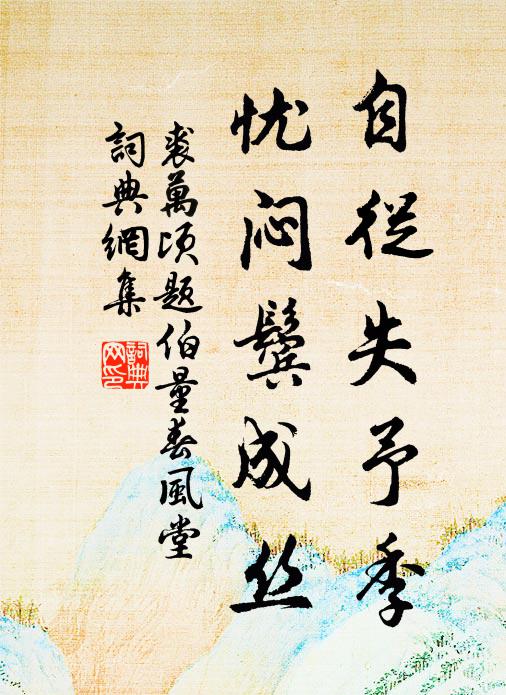 自從失予季
忧闷鬓成丝
裘萬頃题伯量春風堂
詞典網集
詞典网印